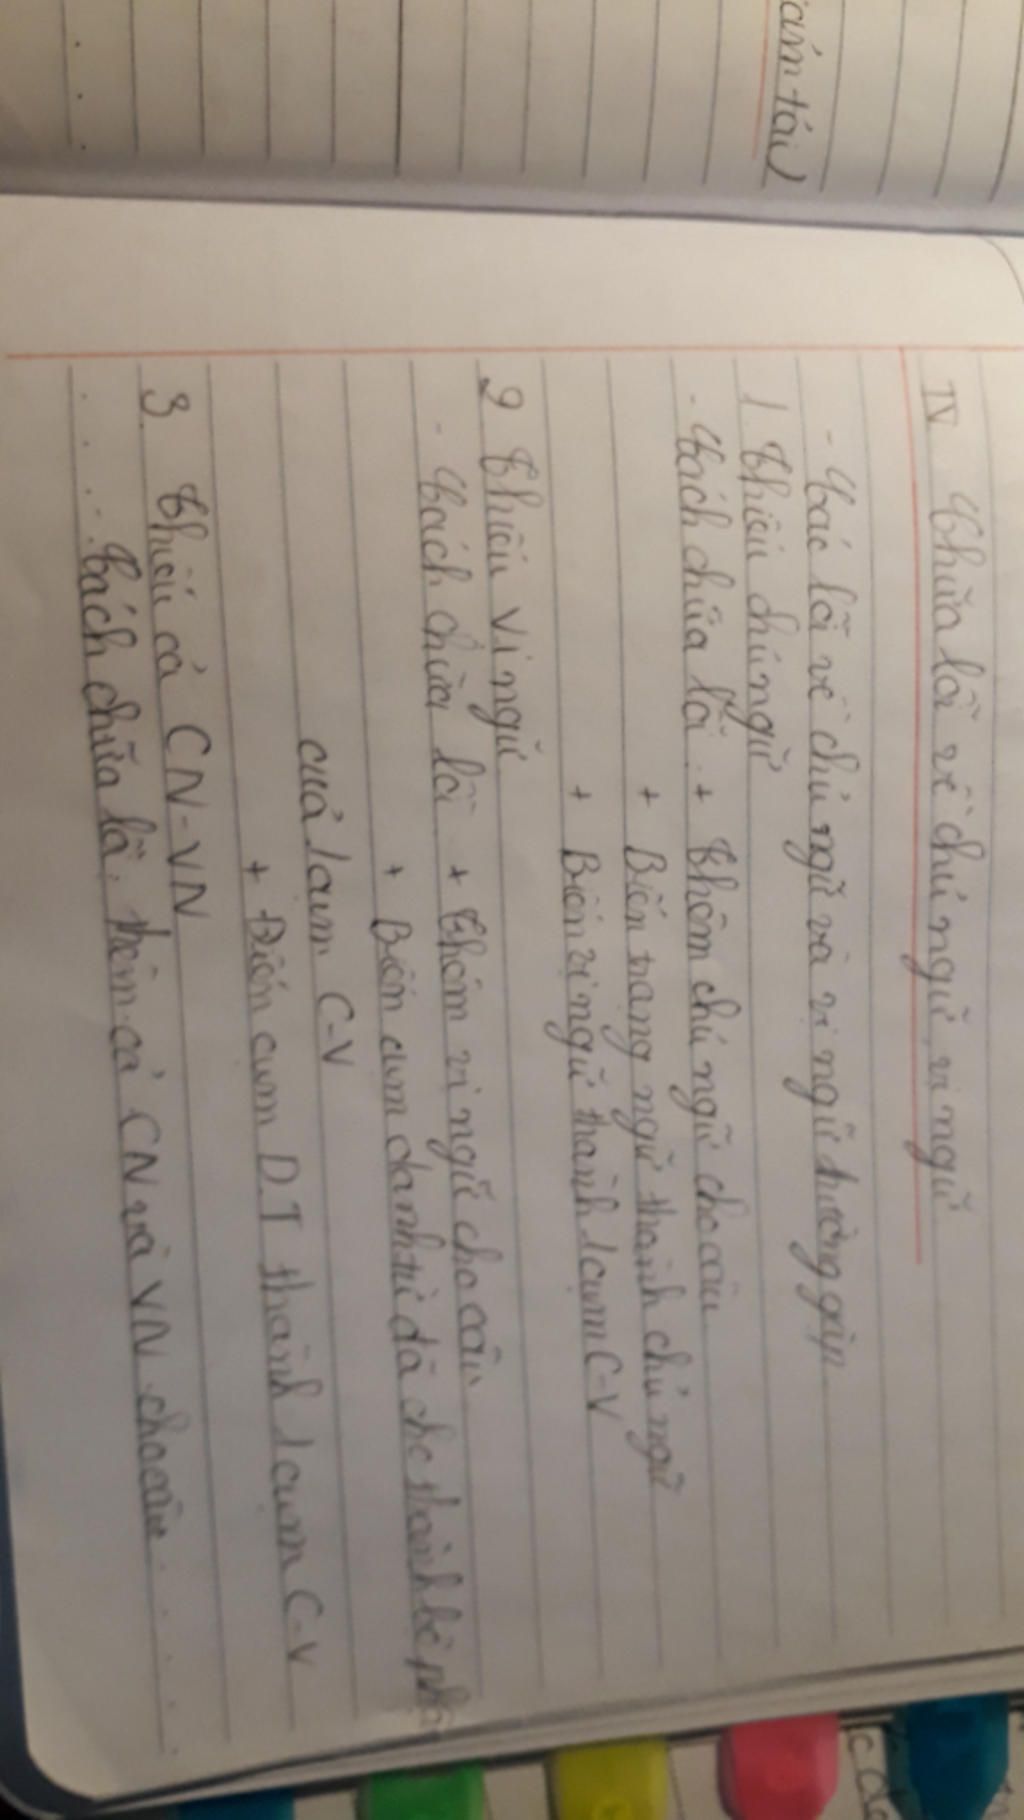 cám thán)
IV Chữa lỗi về chủ ngữ, vị ngữ
- Các lỗi về chủ ngữ và vị ngữ thường gặp
1. Thiếu chủ ngữ
- Cách chữa lỗi: + Thêm chủ ngữ cho câu
+ Biến trạng ngữ thành chủ ngữ
+ Biến vị ngữ thành 1 cụm C-V
2 Thiếu vị ngữ
- Cách chữa lỗi: + Thêm vị ngữ cho câu
+ Biến cụm danh từ đã cho thành bộ phận
của 1 cụm C-V
+ Biến cụm D.T thành 1 cụm C-V
3. Thiếu cả CN-VN
- Cách chữa lỗi: thêm cả CN và VN cho câu